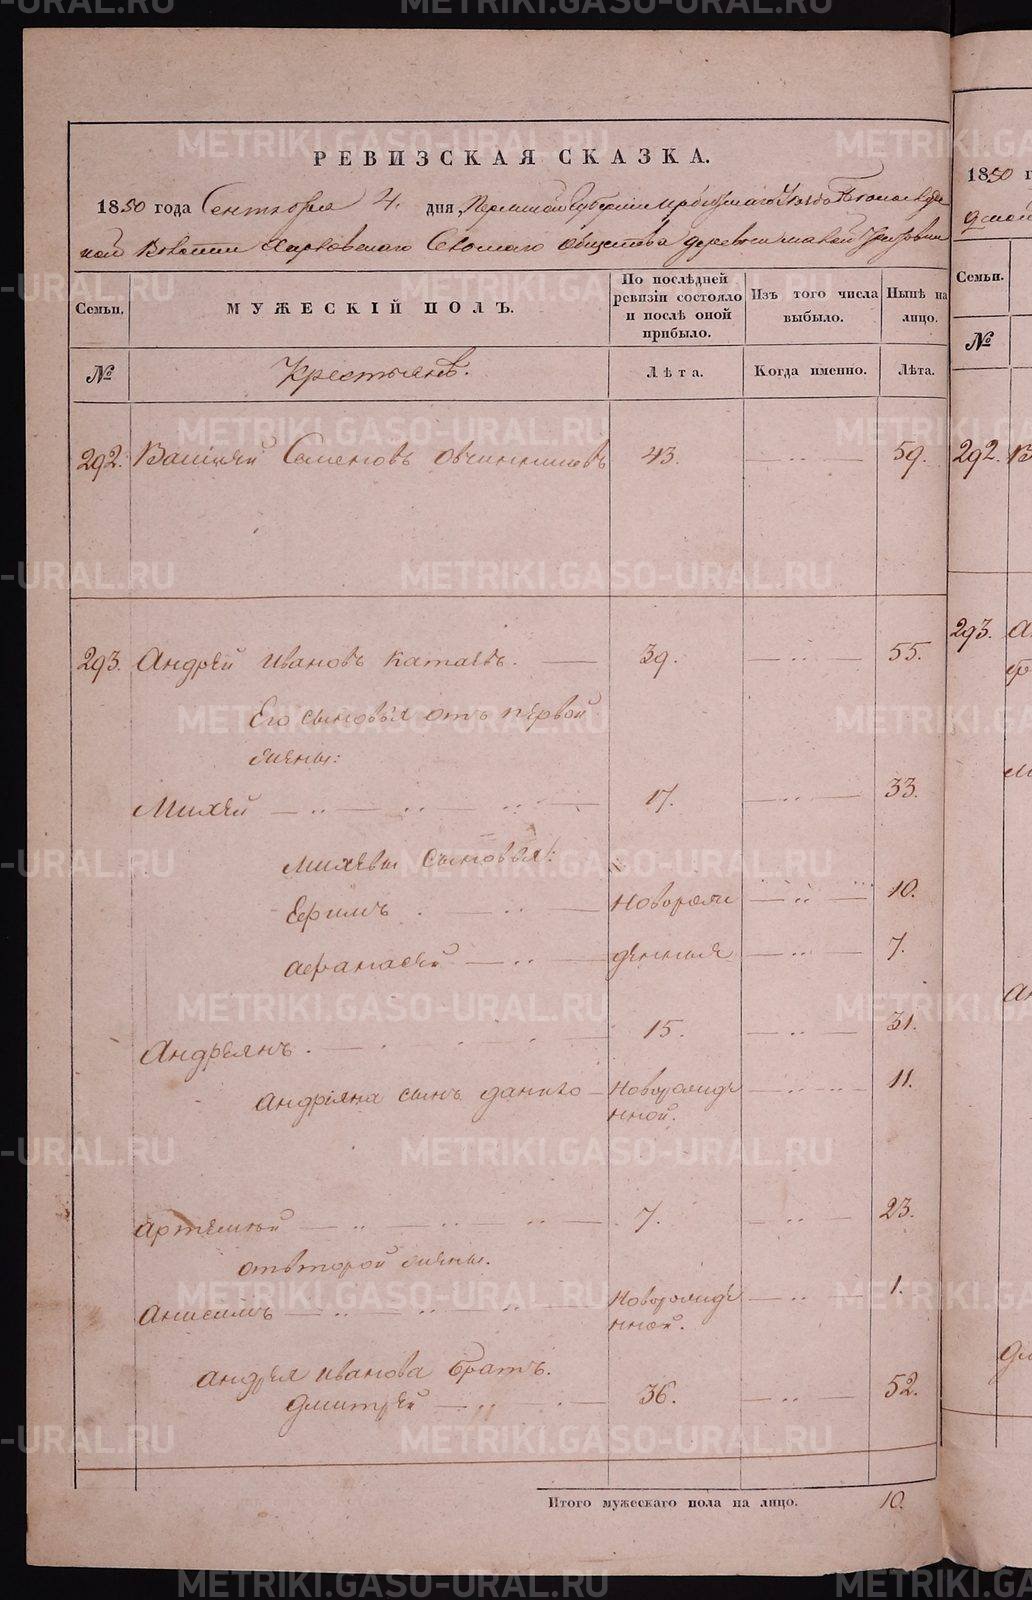 РЕВИЗСКАЯ СКАЗКА.
1850 года Сентября 4. дня, Пермской Губернии Ирбитскаго Уезда
Волости Харловскаго Сельскаго Общества деревни
Семьи.
МУЖЕСКІЙ ПОЛЪ.
По послѣдней ревизіи состояло и послѣ оной прибыло.
Изъ того числа выбыло.
Нынѣ на лицо.
№
Крестьянъ.
Лѣта.
Когда именно.
Лѣта.
292. Василей Семеновъ Овчинниковъ 43. 59.
293. Андрей Ивановъ Катаевъ. 39. 55.
Его сыновья отъ первой
жены:
Михей 17. 33.
Михевы сыновья:
Ефимъ Новорож 10.
Афанасей денныя 7.
Андреянъ. 15. 31.
Андріяна сынъ Данило Новорожде 11.
нной.
Артемей 7. 23.
отъ второй жены.
Анисимъ Новорожде 1.
нной.
Андрея Иванова братъ.
Дмитрей 36. 52.
Итого мужескаго пола на лицо. 10.
1850 г
Семьи.
№
292. В
293. А
METRIKI.GASO-URAL.RU